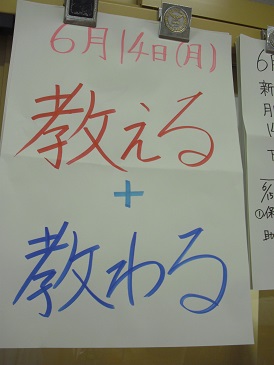 6月14日(月)
教える
+
教わる
6月
新
月
6/15
①保
助